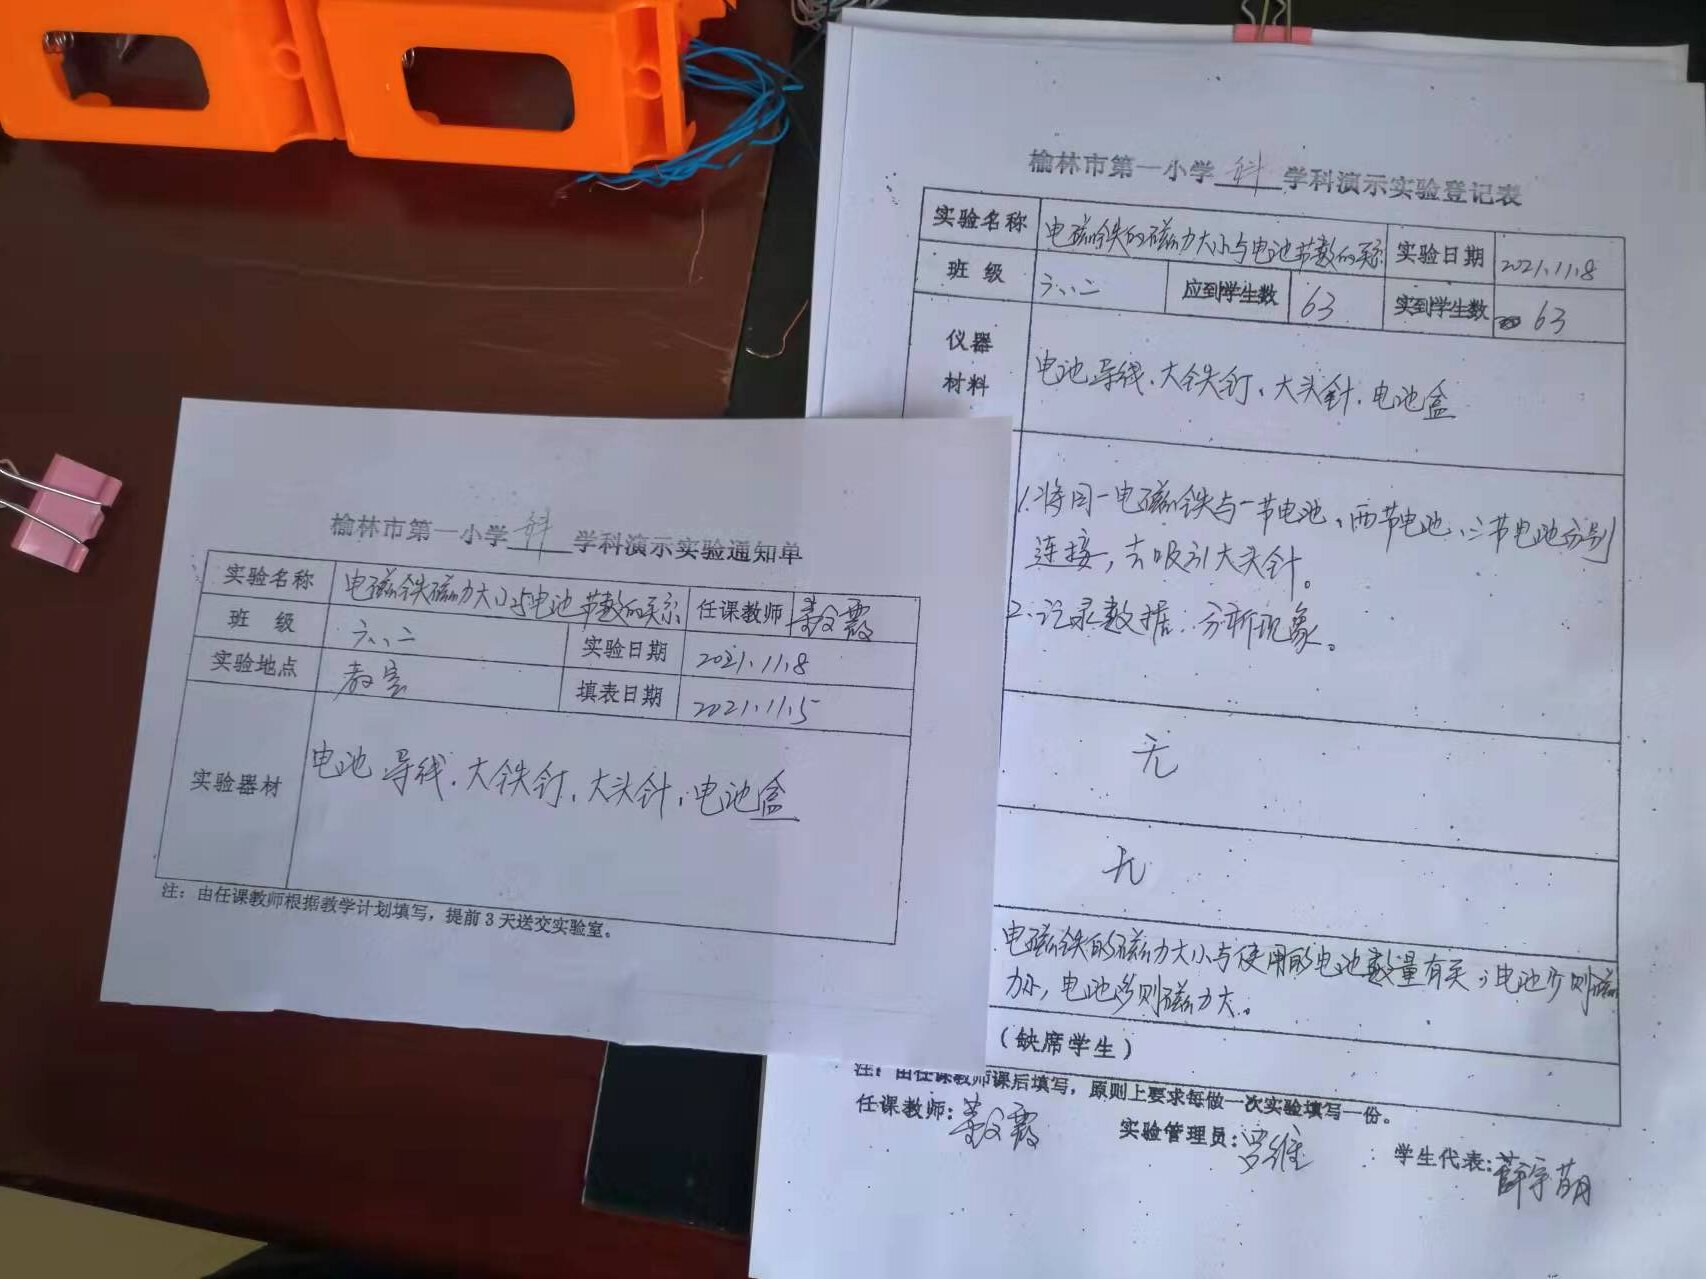 榆林市第一小学 科 学科演示实验通知单
实验名称 电磁铁磁力大小与电池节数的关系 任课教师
班 级 六、二 实验日期 2021.11.8
实验地点 教室 填表日期 2021.11.5
实验器材 电池 导线、大铁钉、大头针、电池盒
注：由任课教师根据教学计划填写，提前3天送交实验室。
榆林市第一小学 科 学科演示实验登记表
实验名称 电磁铁的磁力大小与电池节数的关系 实验日期 2021.11.8
班 级 六、二 应到学生数 63 实到学生数 63
仪器
材料
电池 导线、大铁钉、大头针、电池盒
1.将同一电磁铁与一节电池、两节电池、三节电池分别
连接，去吸引大头针。
2.记录数据，分析现象。
无
无
电磁铁的磁力大小与使用的电池数量有关，电池少则磁
力小，电池多则磁力大。
（缺席学生）
注：由任课教师课后填写，原则上要求每做一次实验填写一份。
任课教师: 实验管理员:罗维 学生代表:薛宇萌